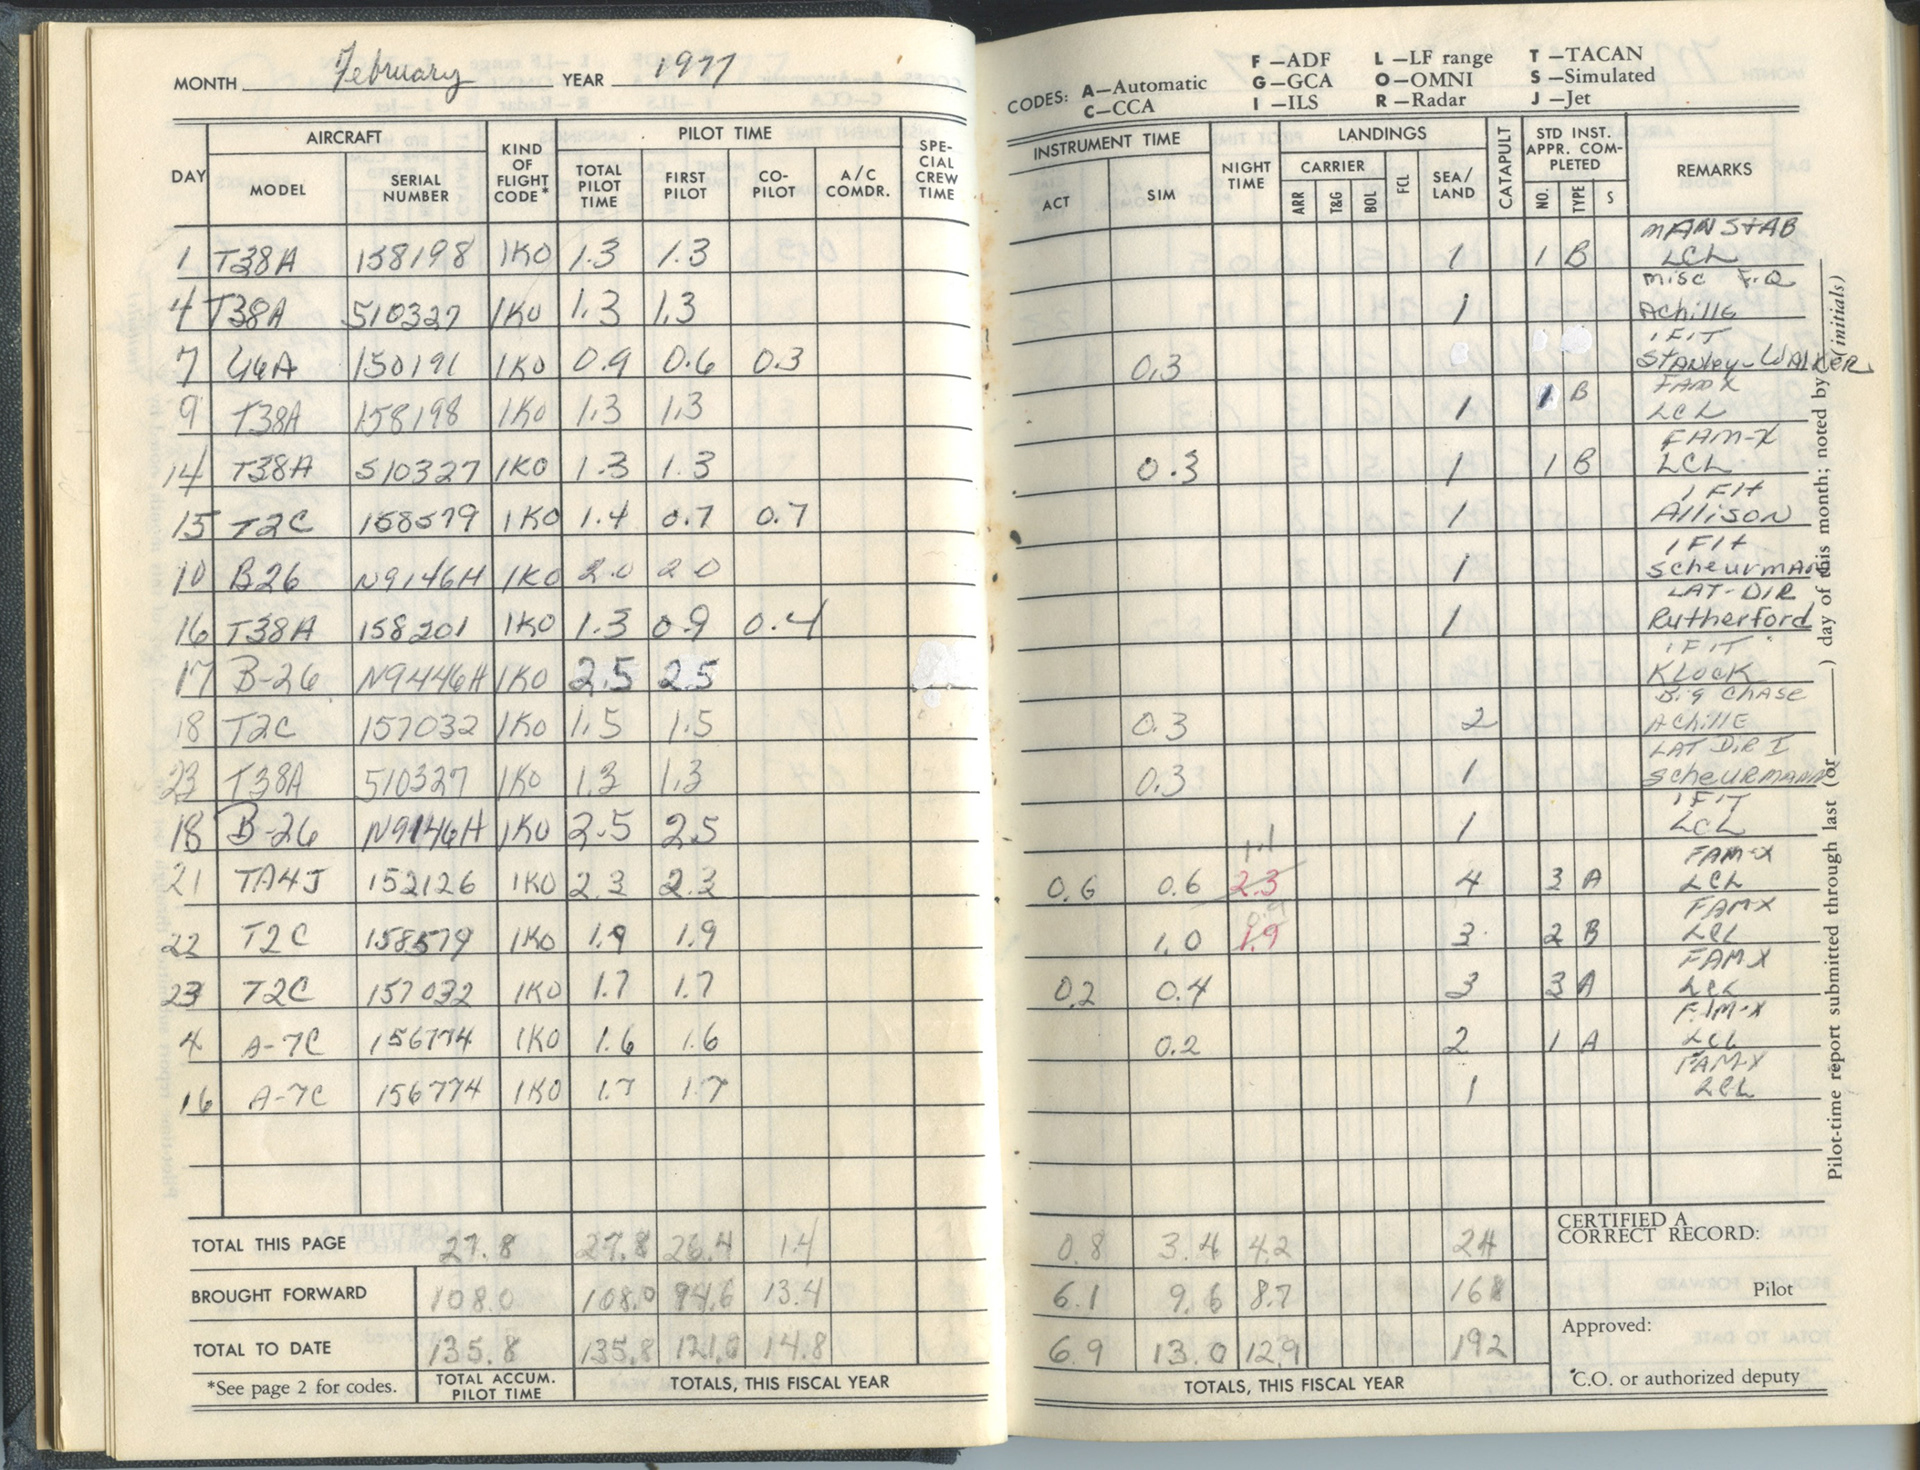 MONTH February YEAR 1977
DAY AIRCRAFT KIND OF FLIGHT CODE* PILOT TIME SPE-CIAL CREW TIME
MODEL SERIAL NUMBER TOTAL PILOT TIME FIRST PILOT CO-PILOT A/C COMDR.
1 T38A 158198 1K0 1.3 1.3
4 T38A 510327 1K0 1.3 1.3
7 U6A 150191 1K0 0.9 0.6 0.3
9 T38A 158198 1K0 1.3 1.3
14 T38A 510327 1K0 1.3 1.3
15 T2C 158579 1K0 1.4 0.7 0.7
10 B26 N9146H 1K0 2.0 2.0
16 T38A 158201 1K0 1.3 0.9 0.4
17 B-26 N9446H 1K0 2.5 2.5
18 T2C 157032 1K0 1.5 1.5
23 T38A 510327 1K0 1.3 1.3
18 B-26 N9146H 1K0 2.5 2.5
21 TA4J 152126 1K0 2.3 2.3
22 T2C 158579 1K0 1.9 1.9
23 T2C 157032 1K0 1.7 1.7
4 A-7C 156774 1K0 1.6 1.6
16 A-7C 156774 1K0 1.7 1.7
TOTAL THIS PAGE 27.8 27.8 26.4 1.4
BROUGHT FORWARD 108.0 108.0 94.6 13.4
TOTAL TO DATE 135.8 135.8 121.0 14.8
*See page 2 for codes. TOTAL ACCUM. PILOT TIME TOTALS, THIS FISCAL YEAR
CODES: A—Automatic C—CCA
F—ADF L—LF range T—TACAN
G—GCA O—OMNI S—Simulated
I—ILS R—Radar J—Jet
INSTRUMENT TIME NIGHT TIME LANDINGS CATAPULT STD INST. APPR. COM-PLETED REMARKS
ACT SIM CARRIER ARR T&G BOL FCL SEA/LAND NO. TYPE S
MAN STAB
1 1 B LCL
Misc F.Q
1 Achille
1 FIT
0.3 Stanley-WALKER
FAM X
1 1 B LCL
FAM-X
0.3 1 1 B LCL
1 FIt
1 Allison
1 FIt
1 Scheurmann
LAT-DIR
1 Rutherford
1 FIT
KLOCK
Big CHASE
0.3 2 AchillE
LAT DIR I
0.3 1 ScheURMANN
1 FIT
1 LCL
1.1 FAM-X
0.6 0.6 2.3 4 3 A LCL
0.9 FAMX
1.0 1.9 3 2 B LCL
FAMX
0.2 0.4 3 3 A LCL
FAM-X
0.2 2 1 A LCL
FAM-X
1 LCL
0.8 3.4 4.2 24
6.1 9.6 8.7 168
6.9 13.0 12.9 192
TOTALS, THIS FISCAL YEAR
CERTIFIED A CORRECT RECORD:
Pilot
Approved:
*C.O. or authorized deputy
Pilot-time report submitted through last (or ) day of this month; noted by (initials)